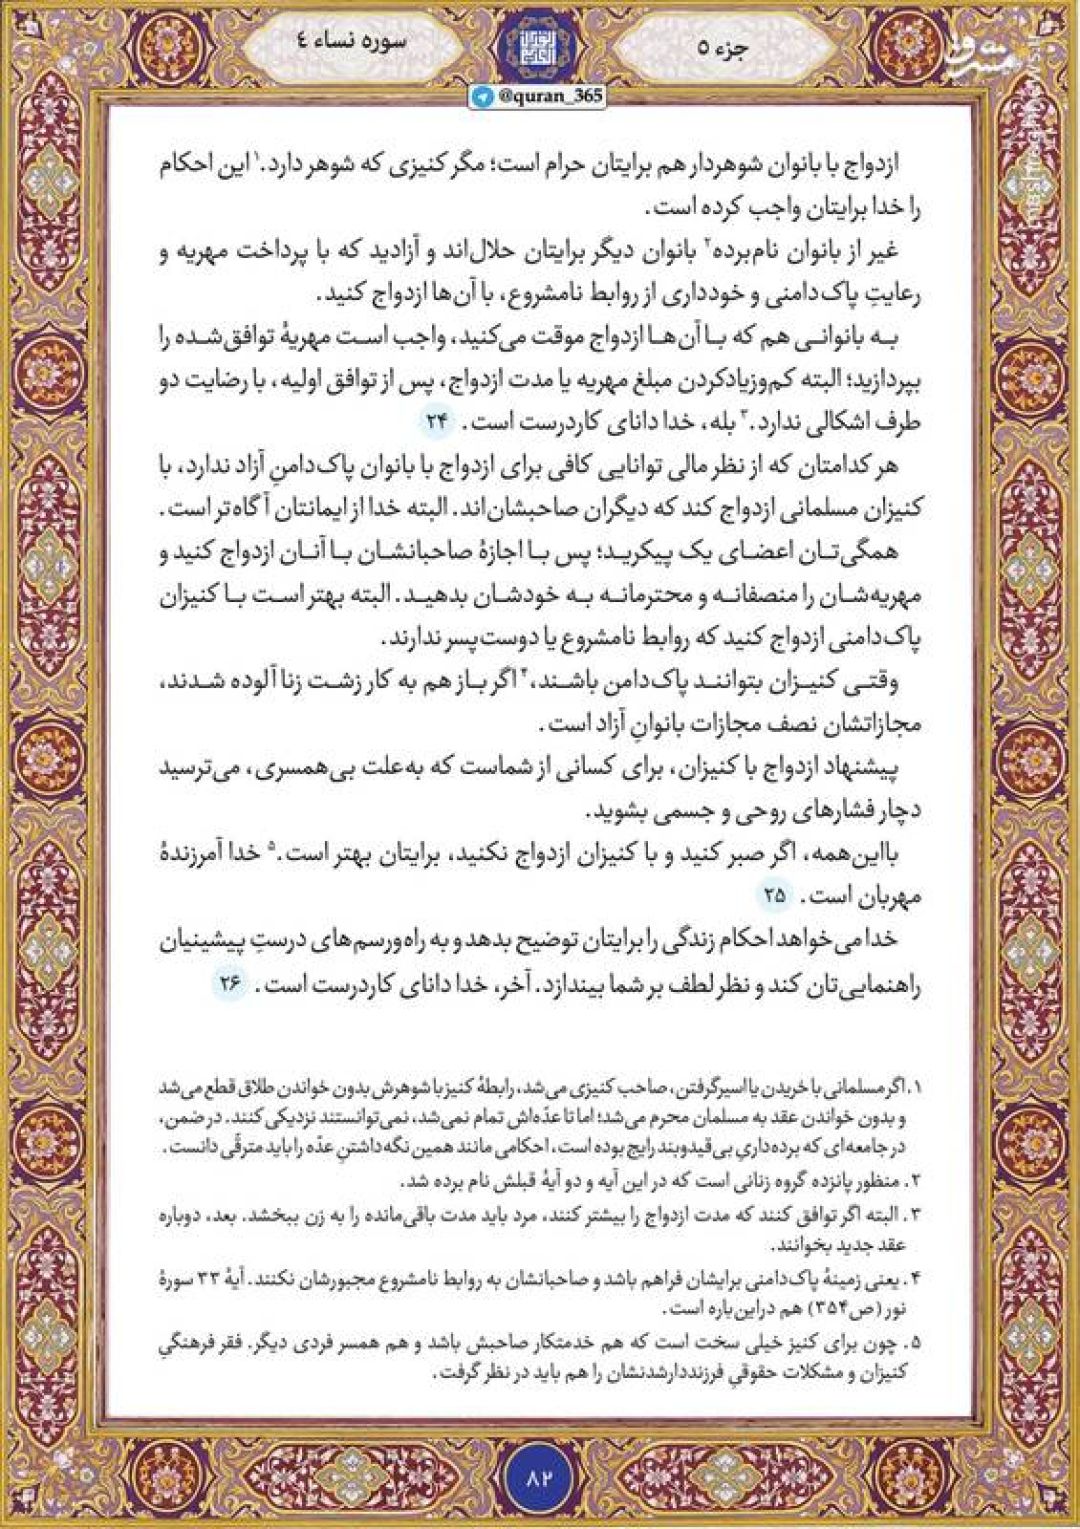 جزء ۵
سوره نساء ٤
مشرق
mashreghnews.ir
@quran_365
ازدواج با بانوان شوهردار هم برایتان حرام است؛ مگر کنیزی که شوهر دارد.۱ این احکام
را خدا برایتان واجب کرده است.
غیر از بانوان نام‌برده۲ بانوان دیگر برایتان حلال‌اند و آزادید که با پرداخت مهریه و
رعایتِ پاک‌دامنی و خودداری از روابط نامشروع، با آن‌ها ازدواج کنید.
به بانوانی هم که با آن‌ها ازدواج موقت می‌کنید، واجب است مهریهٔ توافق‌شده را
بپردازید؛ البته کم‌وزیادکردن مبلغ مهریه یا مدت ازدواج، پس از توافق اولیه، با رضایت دو
طرف اشکالی ندارد.۳ بله، خدا دانای کاردرست است. ۲۴
هر کدامتان که از نظر مالی توانایی کافی برای ازدواج با بانوان پاک‌دامنِ آزاد ندارد، با
کنیزان مسلمانی ازدواج کند که دیگران صاحبشان‌اند. البته خدا از ایمانتان آگاه‌تر است.
همگی‌تان اعضای یک پیکرید؛ پس با اجازهٔ صاحبانشان با آنان ازدواج کنید و
مهریه‌شان را منصفانه و محترمانه به خودشان بدهید. البته بهتر است با کنیزان
پاک‌دامنی ازدواج کنید که روابط نامشروع یا دوست‌پسر ندارند.
وقتی کنیزان بتوانند پاک‌دامن باشند،۴ اگر باز هم به کار زشت زنا آلوده شدند،
مجازاتشان نصف مجازات بانوانِ آزاد است.
پیشنهاد ازدواج با کنیزان، برای کسانی از شماست که به‌علت بی‌همسری، می‌ترسید
دچار فشارهای روحی و جسمی بشوید.
بااین‌همه، اگر صبر کنید و با کنیزان ازدواج نکنید، برایتان بهتر است.۵ خدا آمرزندهٔ
مهربان است. ۲۵
خدا می‌خواهد احکام زندگی را برایتان توضیح بدهد و به راه‌ورسم‌های درستِ پیشینیان
راهنمایی‌تان کند و نظر لطف بر شما بیندازد. آخر، خدا دانای کاردرست است. ۲۶
۱. اگر مسلمانی با خریدن یا اسیرگرفتن، صاحب کنیزی می‌شد، رابطهٔ کنیز با شوهرش بدون خواندن طلاق قطع می‌شد
و بدون خواندن عقد به مسلمان محرم می‌شد؛ اما تا عدّه‌اش تمام نمی‌شد، نمی‌توانستند نزدیکی کنند. در ضمن،
در جامعه‌ای که برده‌داریِ بی‌قیدوبند رایج بوده است، احکامی مانند همین نگه‌داشتنِ عدّه را باید مترقّی دانست.
۲. منظور پانزده گروه زنانی است که در این آیه و دو آیهٔ قبلش نام برده شد.
۳. البته اگر توافق کنند که مدت ازدواج را بیشتر کنند، مرد باید مدت باقی‌مانده را به زن ببخشد. بعد، دوباره
عقد جدید بخوانند.
۴. یعنی زمینهٔ پاک‌دامنی برایشان فراهم باشد و صاحبانشان به روابط نامشروع مجبورشان نکنند. آیهٔ ۳۳ سورهٔ
نور (ص۳۵۴) هم دراین‌باره است.
۵. چون برای کنیز خیلی سخت است که هم خدمتکار صاحبش باشد و هم همسر فردی دیگر. فقر فرهنگیِ
کنیزان و مشکلات حقوقیِ فرزنددارشدنشان را هم باید در نظر گرفت.
۸۲